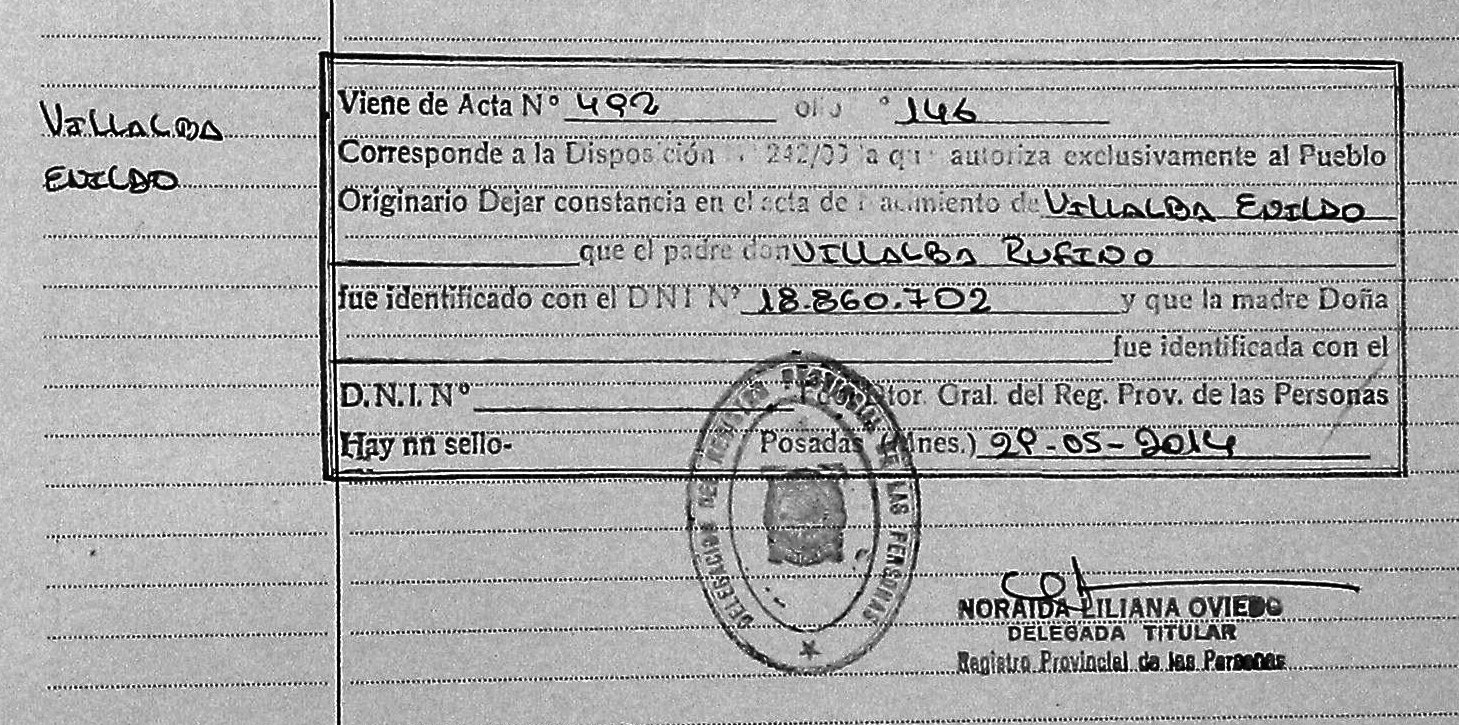 VILLALBA
EVILDO
Viene de Acta Nº 492 146
Corresponde a la Disposición 242/00 la que autoriza exclusivamente al Pueblo
Originario Dejar constancia en el acta de nacimiento de VILLALBA EVILDO
que el padre don VILLALBA RUFINO
fue identificado con el DNI Nº 18.860.702 y que la madre Doña
fue identificada con el
D.N.I. Nº Dtor. Gral. del Reg. Prov. de las Personas
Hay nn sello- Posadas (Mnes.) 29-05-2014
DELEGACIÓN DEL REGISTRO PROVINCIAL DE LAS PERSONAS
NORAIDA LILIANA OVIEDO
DELEGADA TITULAR
Registro Provincial de las Personas